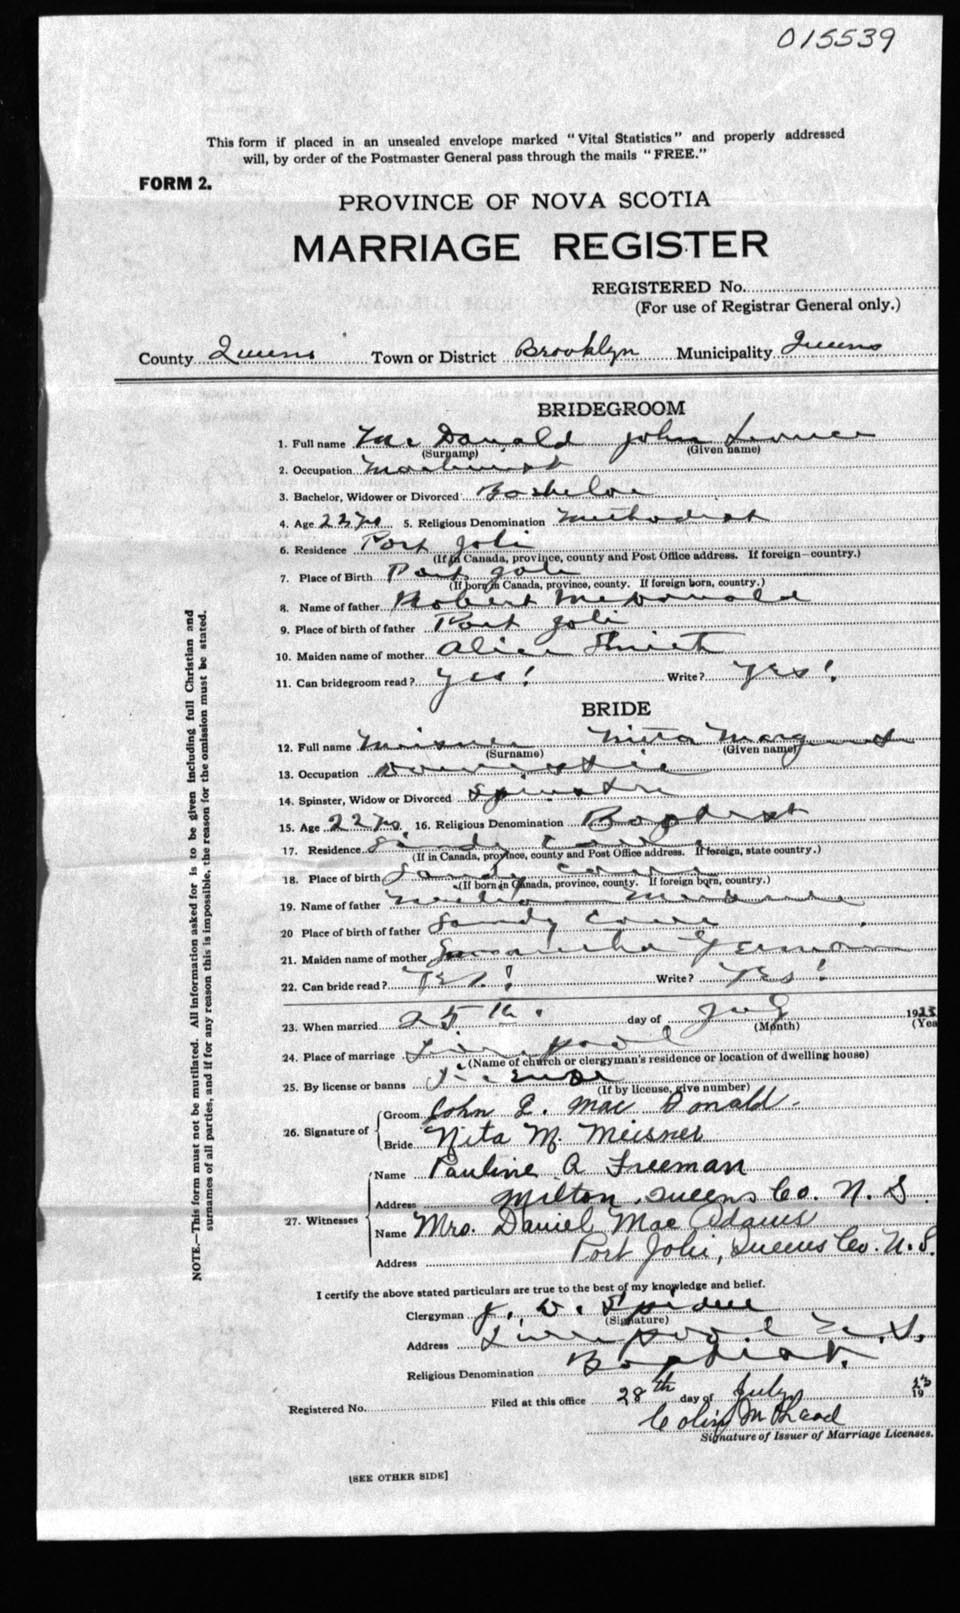 015539
This form if placed in an unsealed envelope marked "Vital Statistics" and properly addressed
will, by order of the Postmaster General pass through the mails "FREE."
FORM 2.
PROVINCE OF NOVA SCOTIA
MARRIAGE REGISTER
REGISTERED No.
(For use of Registrar General only.)
County Queens Town or District Brooklyn Municipality Queens
BRIDEGROOM
1. Full name Mc Donald John
(Surname) (Given name)
2. Occupation Machinist
3. Bachelor, Widower or Divorced Bachelor
4. Age 22 yrs 5. Religious Denomination Methodist
6. Residence Port Joli
(If in Canada, province, county and Post Office address. If foreign—country.)
7. Place of Birth Port Joli
(If born in Canada, province, county. If foreign born, country.)
8. Name of father Robert McDonald
9. Place of birth of father Port Joli
10. Maiden name of mother Alice
11. Can bridegroom read? Yes! Write? Yes!
BRIDE
12. Full name Meisner Nita Margaret
(Surname) (Given name)
13. Occupation Domestic
14. Spinster, Widow or Divorced Spinster
15. Age 22 yrs. 16. Religious Denomination Baptist
17. Residence Sandy Cove
(If in Canada, province, county and Post Office address. If foreign, state country.)
18. Place of birth Sandy Cove
(If born in Canada, province, county. If foreign born, country.)
19. Name of father Meisner
20 Place of birth of father Sandy Cove
21. Maiden name of mother Samantha
22. Can bride read? Yes! Write? Yes!
23. When married 25th. day of July 1923
(Month) (Year
24. Place of marriage Liverpool
(Name of church or clergyman's residence or location of dwelling house)
25. By license or banns License
(If by license, give number)
26. Signature of
Groom John L. Mac Donald
Bride Nita M. Meisner
27. Witnesses
Name Pauline A Freeman
Address Milton, Queens Co. N. S.
Name Mrs. Daniel Mac Adams
Address Port Joli, Queens Co. N.S.
I certify the above stated particulars are true to the best of my knowledge and belief.
Clergyman
(Signature)
Address Liverpool N.S.
Religious Denomination Baptist.
Registered No. Filed at this office 28th day of July 1923
Colin McLeod
Signature of Issuer of Marriage Licenses.
[SEE OTHER SIDE]
NOTE.—This form must not be mutilated. All information asked for is to be given including full Christian and
surnames of all parties, and if for any reason this is impossible, the reason for the omission must be stated.